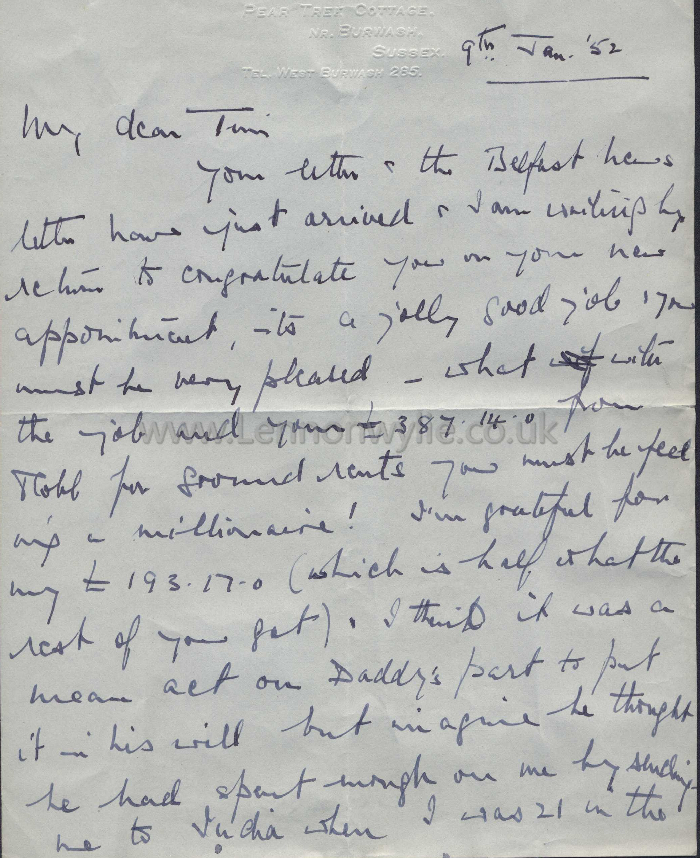 PEAR TREE COTTAGE,
NR. BURWASH,
SUSSEX.
TEL. WEST BURWASH 285.
9th Jan. '52
My dear Tim
your letter & the Belfast news
letter have just arrived & I am writing by
return to congratulate you on your new
appointment, its a jolly good job & you
must be very pleased – what with
the job and your £387.14.0 from
Robb for ground rents you must be feel
ing a millionaire! I'm grateful for
my £193.17.0 (which is half what the
rest of you get). I think it was a
mean act on Daddy's part to put
it in his will but imagine he thought
he had spent enough on me by sending
me to India when I was 21 in the
www.Lennonwylie.co.uk